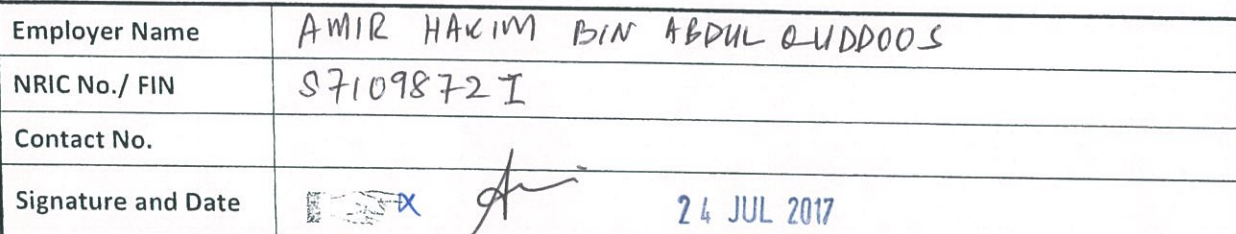 Employer Name AMIR HAKIM BIN ABDUL QUDDOOS
NRIC No./ FIN S7109872I
Contact No.
Signature and Date 24 JUL 2017